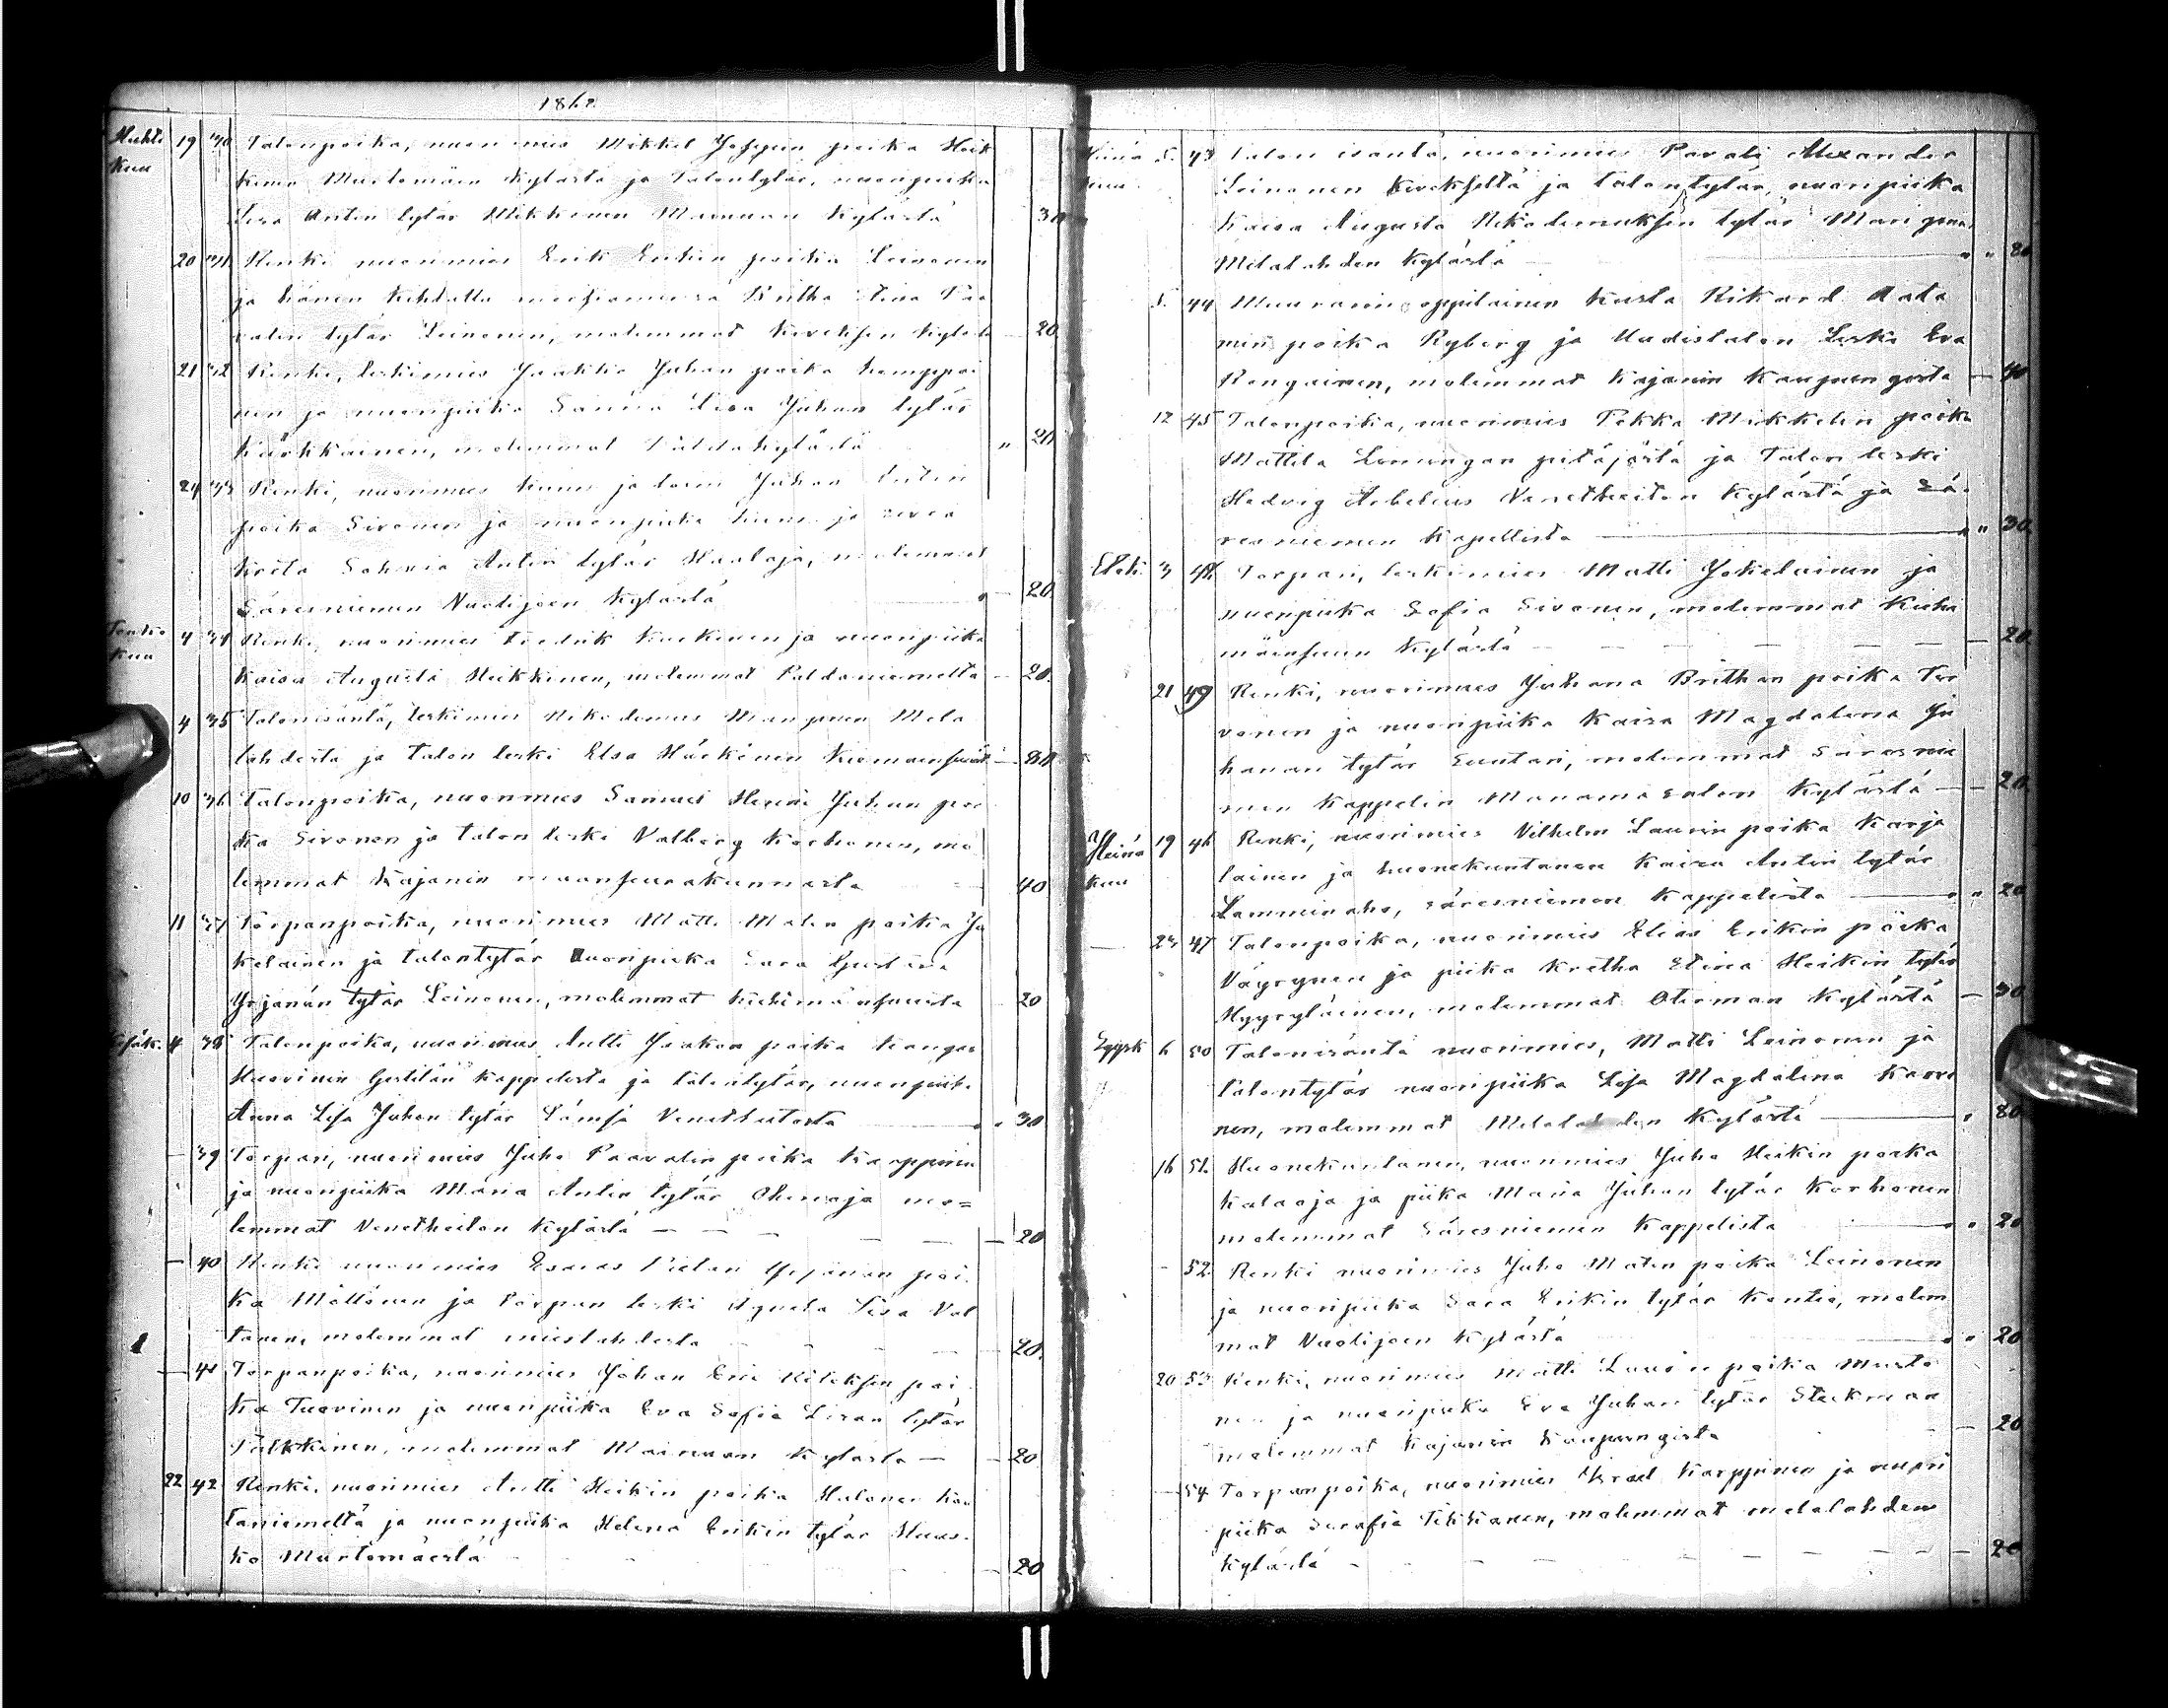 1862
Huhti 19 30 Talonpoika, nuorimies Mikkel Josepin poika Heik
kuu kinen Murtomäen kylästä ja Talontytär, nuoripiika
Lisa Antin tytär Mikkonen Mainuan kylästä 30
20 31 Renki nuorimies Erik Erikin poika Leinonen
ja hänen kihlattu Britha Stina Paa
valin tytär Leinonen, molemmat Koveksen kylästä 20
21 32 Renki, leskimies Jaakko Juhan poika Kemppai
nen ja nuoripiika Sanna Lisa Juhan tytär
Kärkkäinen, molemmat kylästä " 20
24 33 Renki, nuorimies Juhan Antin
poika Sivonen ja nuoripiika
Kreta Sohvia Antin tytär Haataja, molemmat
Säresniemen Vuolijoen kylästä 20
Touko 4 34 Renki, nuorimies Fredrik ja nuoripiika
kuu Kaisa Augusta Heikkinen, molemmat Paldaniemeltä — 20.
4 35 Talonisäntä, leskimies Nikodemus Manginen Mela
lahdesta ja talon leski Elsa Härkönen 80
10 36 Talonpoika, nuorimies Samuel Henrik Juhan poi
ka Sivonen ja talon leski Valborg Korhonen, mo
lemmat Kajanin maanseurakunnasta 40
11 37 Torpanpoika, nuorimies Matti Matin poika Jo
kelainen ja talontytär nuoripiika Sara
Yrjänän tytär Leinonen, molemmat 20
Kesäk. 4 38 Talonpoika, nuorimies Antti Jaakon poika Kangas
Huovinen kappelista ja talontytär, nuoripiika
Anna Lisa Juhan tytär Lämsä Venetheitosta " 30
— 39 Torpari, nuorimies Juho Paavalin poika Karppinen
ja nuoripiika Maria Antin tytär mo=
lemmat Venetheiton kylästä — — — — — 20
— 40 Renki nuorimies Esaias Yrjänän poi
ka Möttönen ja torpan leski Agneta Lisa Val
tanen, molemmat mieslahdesta 20.
— 41 Torpanpoika, nuorimies Johan Eric poi
ka Tuovinen ja nuoripiika Eva Sofia Lisan tytär
Pulkkinen, molemmat Mainuan kylästä — 20
22 42 Renki, nuorimies Antti Heikin poika Halonen
taniemeltä ja nuoripiika Helena Erikin tytär Huus-
ko Murtomäestä — 20
Heinä 5. 43 Talon isäntä, nuorimies Paavali Alexander
kuu Leinonen Koveksella ja talontytär, nuoripiika
Kaisa Augusta Nikodemuksen tytär Manginen
Melalahden kylästä " " 80
5. 44 Muurarin oppilainen Kusta Rikard Aata
min poika Ryberg ja Uudistalon Leski Eva
Rongainen, molemmat Kajanin kaupungista — 40
12 45 Talonpoika, nuorimies Pekka Mikkelin poika
Mattila Limingan pitäjästä ja Talon leski
Hedvig Arbelius Venetheiton kylästä ja Sä-
resniemen kapellista " " 30
Elok. 3 48 Torpari, leskimies Matti Jokelainen ja
nuoripiika Sofia Sivonen, molemmat
kylästä — — — — — 20
21 49 Renki, nuorimies Juhana Brithan poika Tor
vonen ja nuoripiika Kaisa Magdalena Ju
hanan tytär Suutari, molemmat Säresnie
men kappelin Manamasalon kylästä — 20.
Heinä 19 46 Renki, nuorimies Vilhelm Laurin poika Karja
kuu lainen ja huonekuntanen Kaisa Antin tytär
Lamminaho, säresniemen kappelista " " 20
— 23 47 Talonpoika, nuorimies Elias Erikin poika
Väyrynen ja piika Kretha Elina Heikin tytär
Hyyryläinen, molemmat Oterman kylästä — 30
Syysk 6 50 Talonisäntä nuorimies, Matti Leinonen ja
talontytär nuoripiika Lisa Magdalena Karvo
nen, molemmat Melalahden kylästä " 80
16 51. Huonekuntanen, nuorimies Juho Heikin poika
Kalaoja ja piika Maria Juhan tytär Korhonen
molemmat Säresniemen kappelista " " 20
- 52. Renki nuorimies Juho Matin poika Leinonen
ja nuoripiika Sara Erikin tytär Kontio, molem
mat Vuolijoen kylästä " " 20
20 53 Renki, nuorimies Matti Laurin poika Musto
nen ja nuoripiika Eva Juhan tytär Steckman
molemmat Kajanin kaupungista — 20
— 54 Torpanpoika, nuorimies Israel Karppinen ja nuori
piika Serafia Tikkanen, molemmat melalahden
kylästä — — — — — — 20